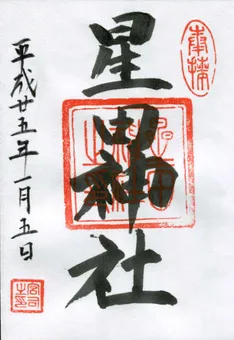 奉拝
星田神社
平成廿五年一月五日